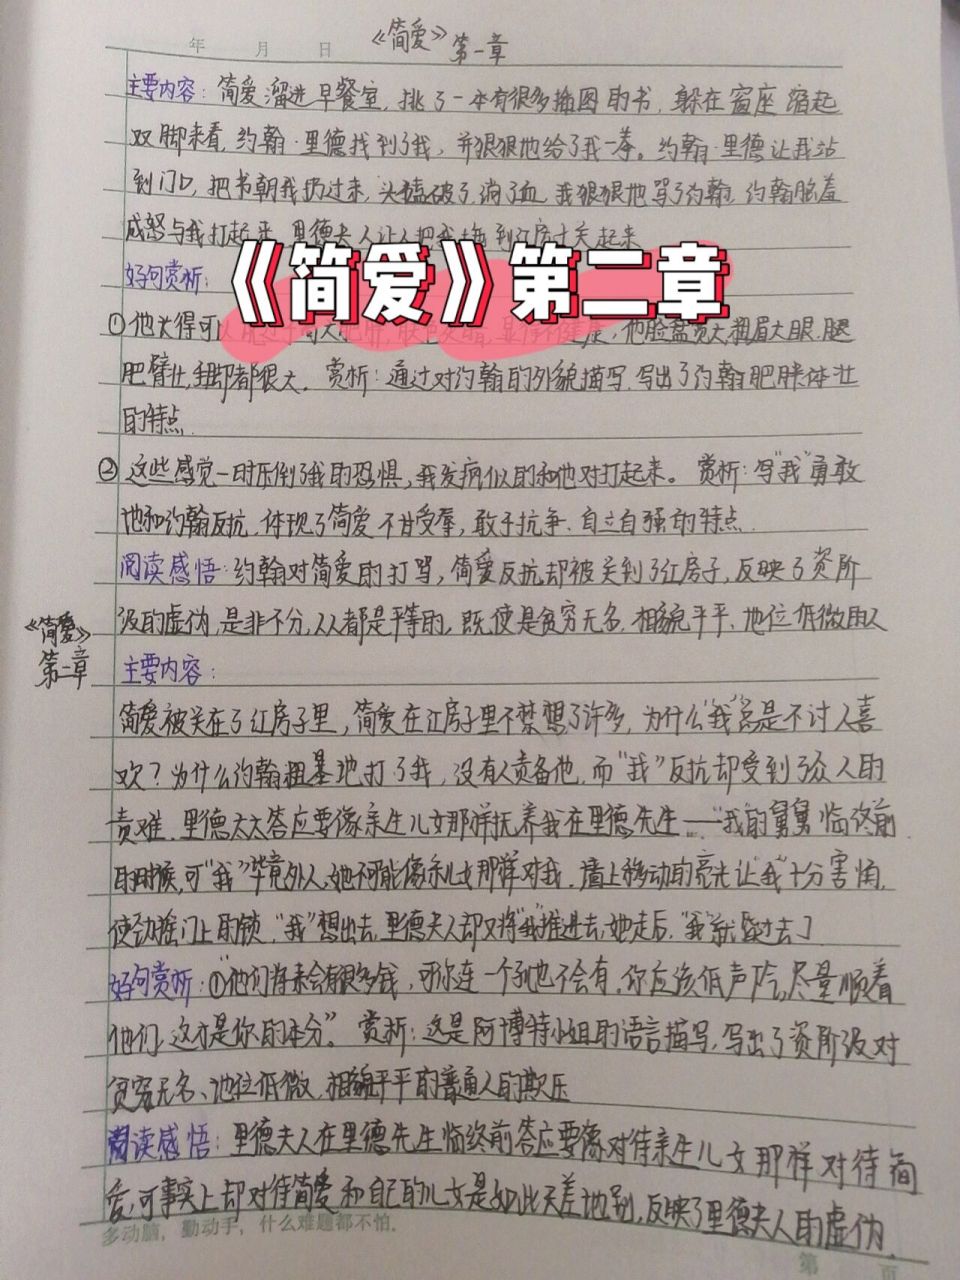 年 月 日 《简爱》第一章
主要内容：简爱溜进早餐室，挑了一本有很多插图的书，躲在窗座缩起
双脚来看，约翰·里德找到了我，并狠狠地给了我一拳。约翰·里德让我站
到门口，把书朝我扔过来，头磕破了，淌了血，我狠狠地骂了约翰，约翰脑羞
成怒与我打起来，里德夫人让人把我拖到红房子关起来
好句赏析：
《简爱》第二章
①他长得可以 他脸盘宽大，粗眉大眼，腿
肥臂壮，手脚都很大。赏析：通过对约翰的外貌描写，写出了约翰肥胖体壮
的特点.
②这些感觉一时压倒了我的恐惧，我发疯似的和他对打起来。赏析：写"我"勇敢
地和约翰反抗，体现了简爱不甘受辱，敢于抗争、自立自强的特点.
阅读感悟：约翰对简爱的打骂，简爱反抗却被关到了红房子，反映了资阶
级的虚伪，是非不分，人人都是平等的，既使是贫穷无名，相貌平平、地位低微的人
《简爱》
第二章
主要内容：
简爱被关在了红房子里，简爱在红房子里不禁想了许多，为什么"我"总是不讨人喜
欢？为什么约翰粗暴地打了我，没有人责备他，而"我"反抗却受到了众人的
责难，里德太太答应要像亲生儿女那样抚养我在里德先生——"我"的舅舅临终前
的时候，可"我"毕竟外人，她不可能像亲儿女那样对我，墙上移动的亮光让"我"十分害怕，
使劲摇门上的锁，"我"想出去，里德夫人却又将"我"推进去，她走后，"我"就昏过去了
好句赏析：①"他们将来会有很多钱，可你连一个子儿也不会有，你应该低声下气，尽量顺着
他们，这才是你的本分"赏析：这是阿博特小姐的语言描写，写出了资阶级对
贫穷无名、地位低微，相貌平平的普通人的欺压
阅读感悟：里德夫人在里德先生临终前答应要像对待亲生儿女那样对待简
爱，可事实上却对待简爱和自己的儿女是如此天差地别，反映了里德夫人的虚伪.
多动脑，勤动手，什么难题都不怕.
第 页